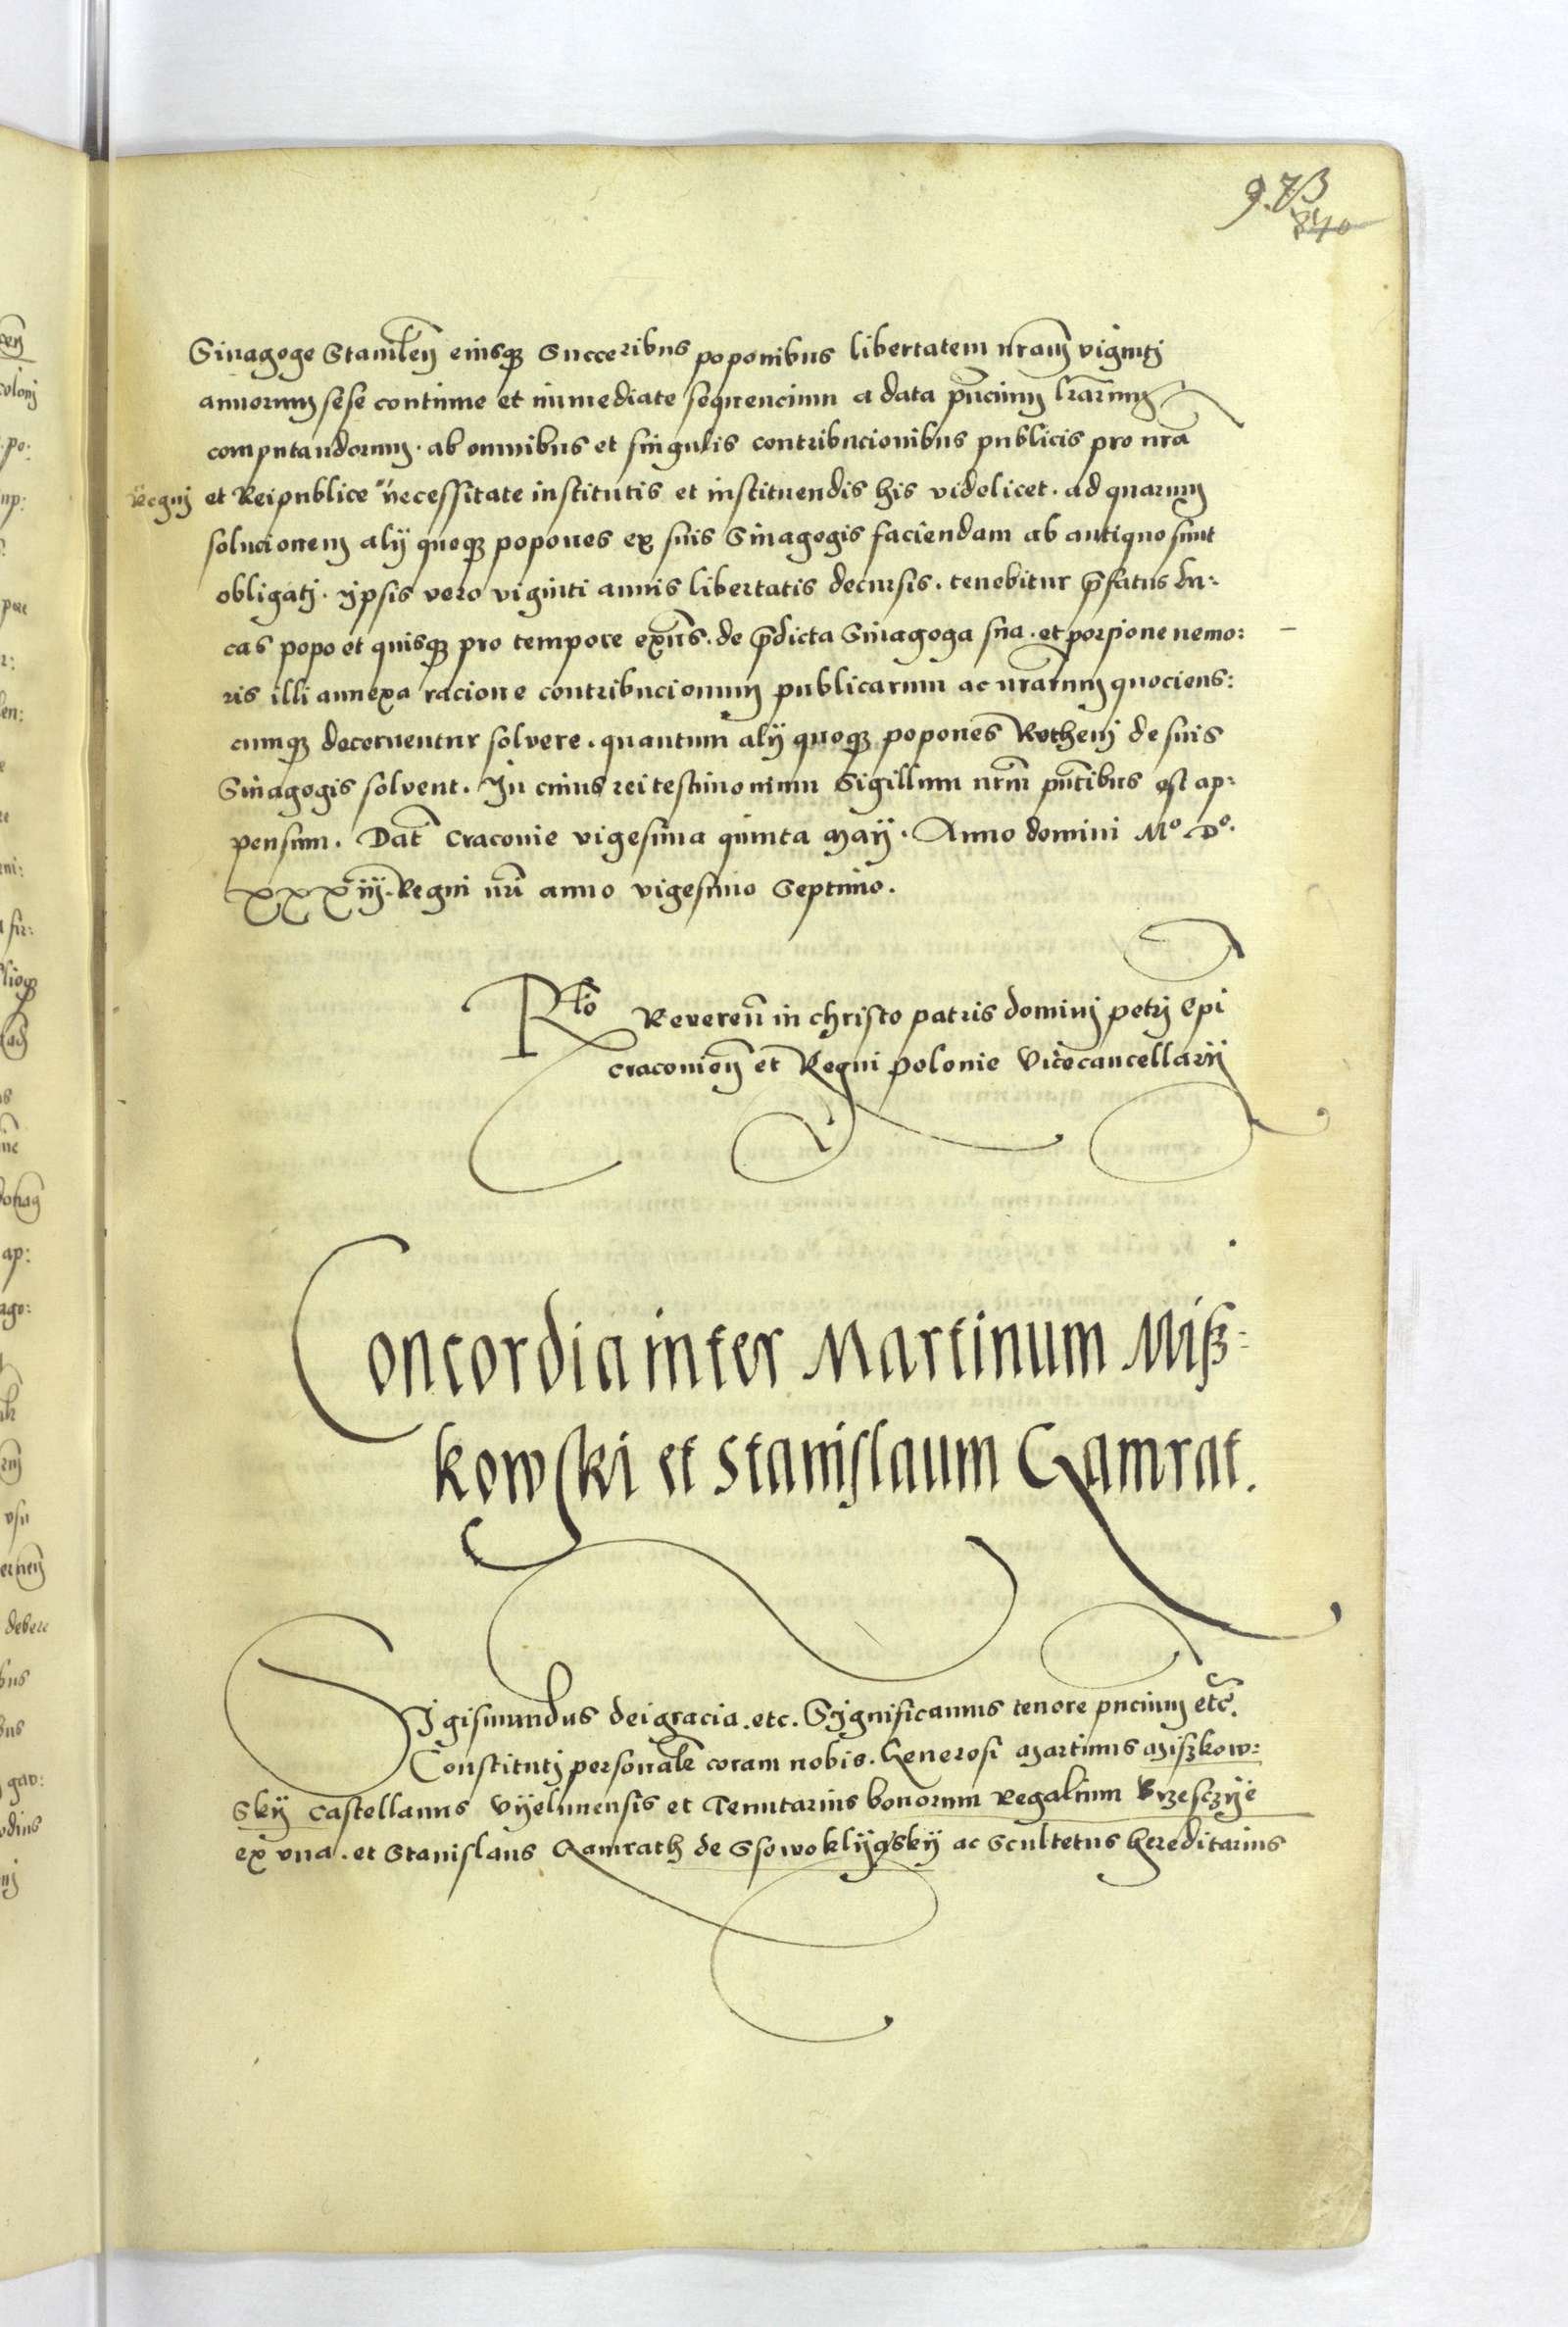 973
840
Sinagoge Stamlen eiusqz Succeribus poponibus libertatem nram viginti
annorum sese continue et immediate sequencium a data pncium lrarum
computandorum. ab omnibus et singulis contribucionibus publicis pro nra
Regni et Reipublice necessitate institutis et instituendis his videlicet. ad quarum
solucionem alij quoqz popones ex suis Sinagogis faciendam ab antiquo sunt
obligatj. ijpsis vero viginti annis libertatis decursis. tenebitur pfatus Lu:
cas popo et quisqz pro tempore exns. de pdicta Sinagoga sua. et porsione nemo:
ris illi annexa racione contribucionum publicarum ac nrarum quociens:
cumqz decernentur solvere. quantum alij quoqz popones Rothenj de suis
Sinagogis solvent. In cuius rei testimonium Sigillum nrm pntibus est ap:
pensum. Dat Cracovie vigesima quinta Maij. Anno domini Mo Do.
XXXiij. Regni nri anno vigesimo Septimo.
Rlo Reveren in christo patris dominj petrj Epi
cracovien et Regni polonie Vicecancellarij
Concordia inter Martinum Misz-
kowski et Stanislaum Gamrat.
Sigismundus dei gracia. etc. Significamus tenore pncium etc.
Constitutj personalr coram nobis. Generosi Martinus Miszkow:
skij Castellanus Vijelunensis et Tenutarius bonorum Regalium Brzesczije
ex una. et Stanislaus Gamrath de Ssowoklijąskij ac Scultetus hereditarius
en
colonj
po:
np:
pore
r:
en:
ap:
ago:
vsu
debere
bus
gao:
odius